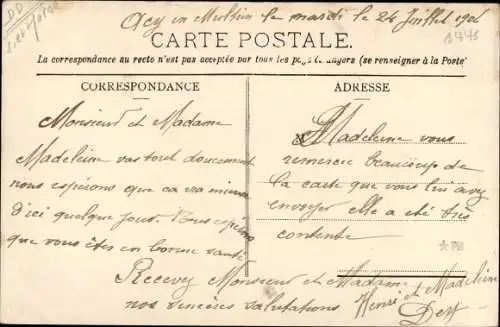 Acy en Multien le mardi le 24 Juillet 190
CARTE POSTALE.
La correspondance au recto n'est pas acceptée par tous les pays étrangers (se renseigner à la Poste)
CORRESPONDANCE
ADRESSE
Monsieur et Madame
Madeleine vas tout doucement
nous espérons que ca va mieux
d'ici quelque jour. Nous espérons
que vous êtes en bonne santé
M
Madeleine vous
remercie beaucoup de
la carte que vous lui avez
envoyer elle a été très
contente
Recevez Monsieur et Madame
nos sincères salutations
Henri et Madeleine